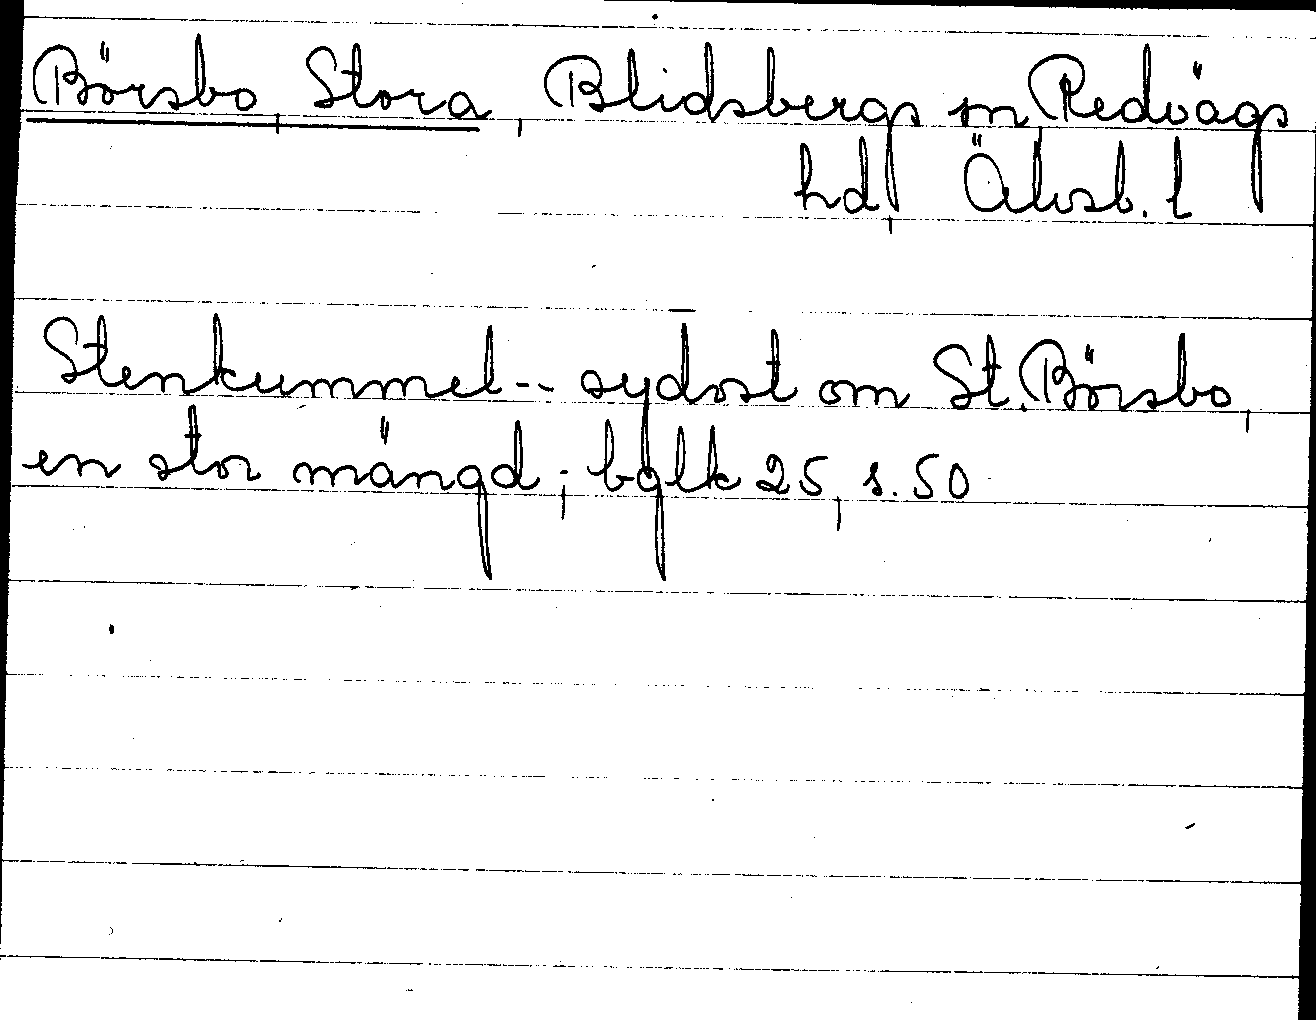 Börsbo, Stora, Blidsbergs sn, Redvägs
hd, Älvsb. l
Stenkummel -- sydost om St. Börsbo,
en stor mängd; bglk 25, s. 50